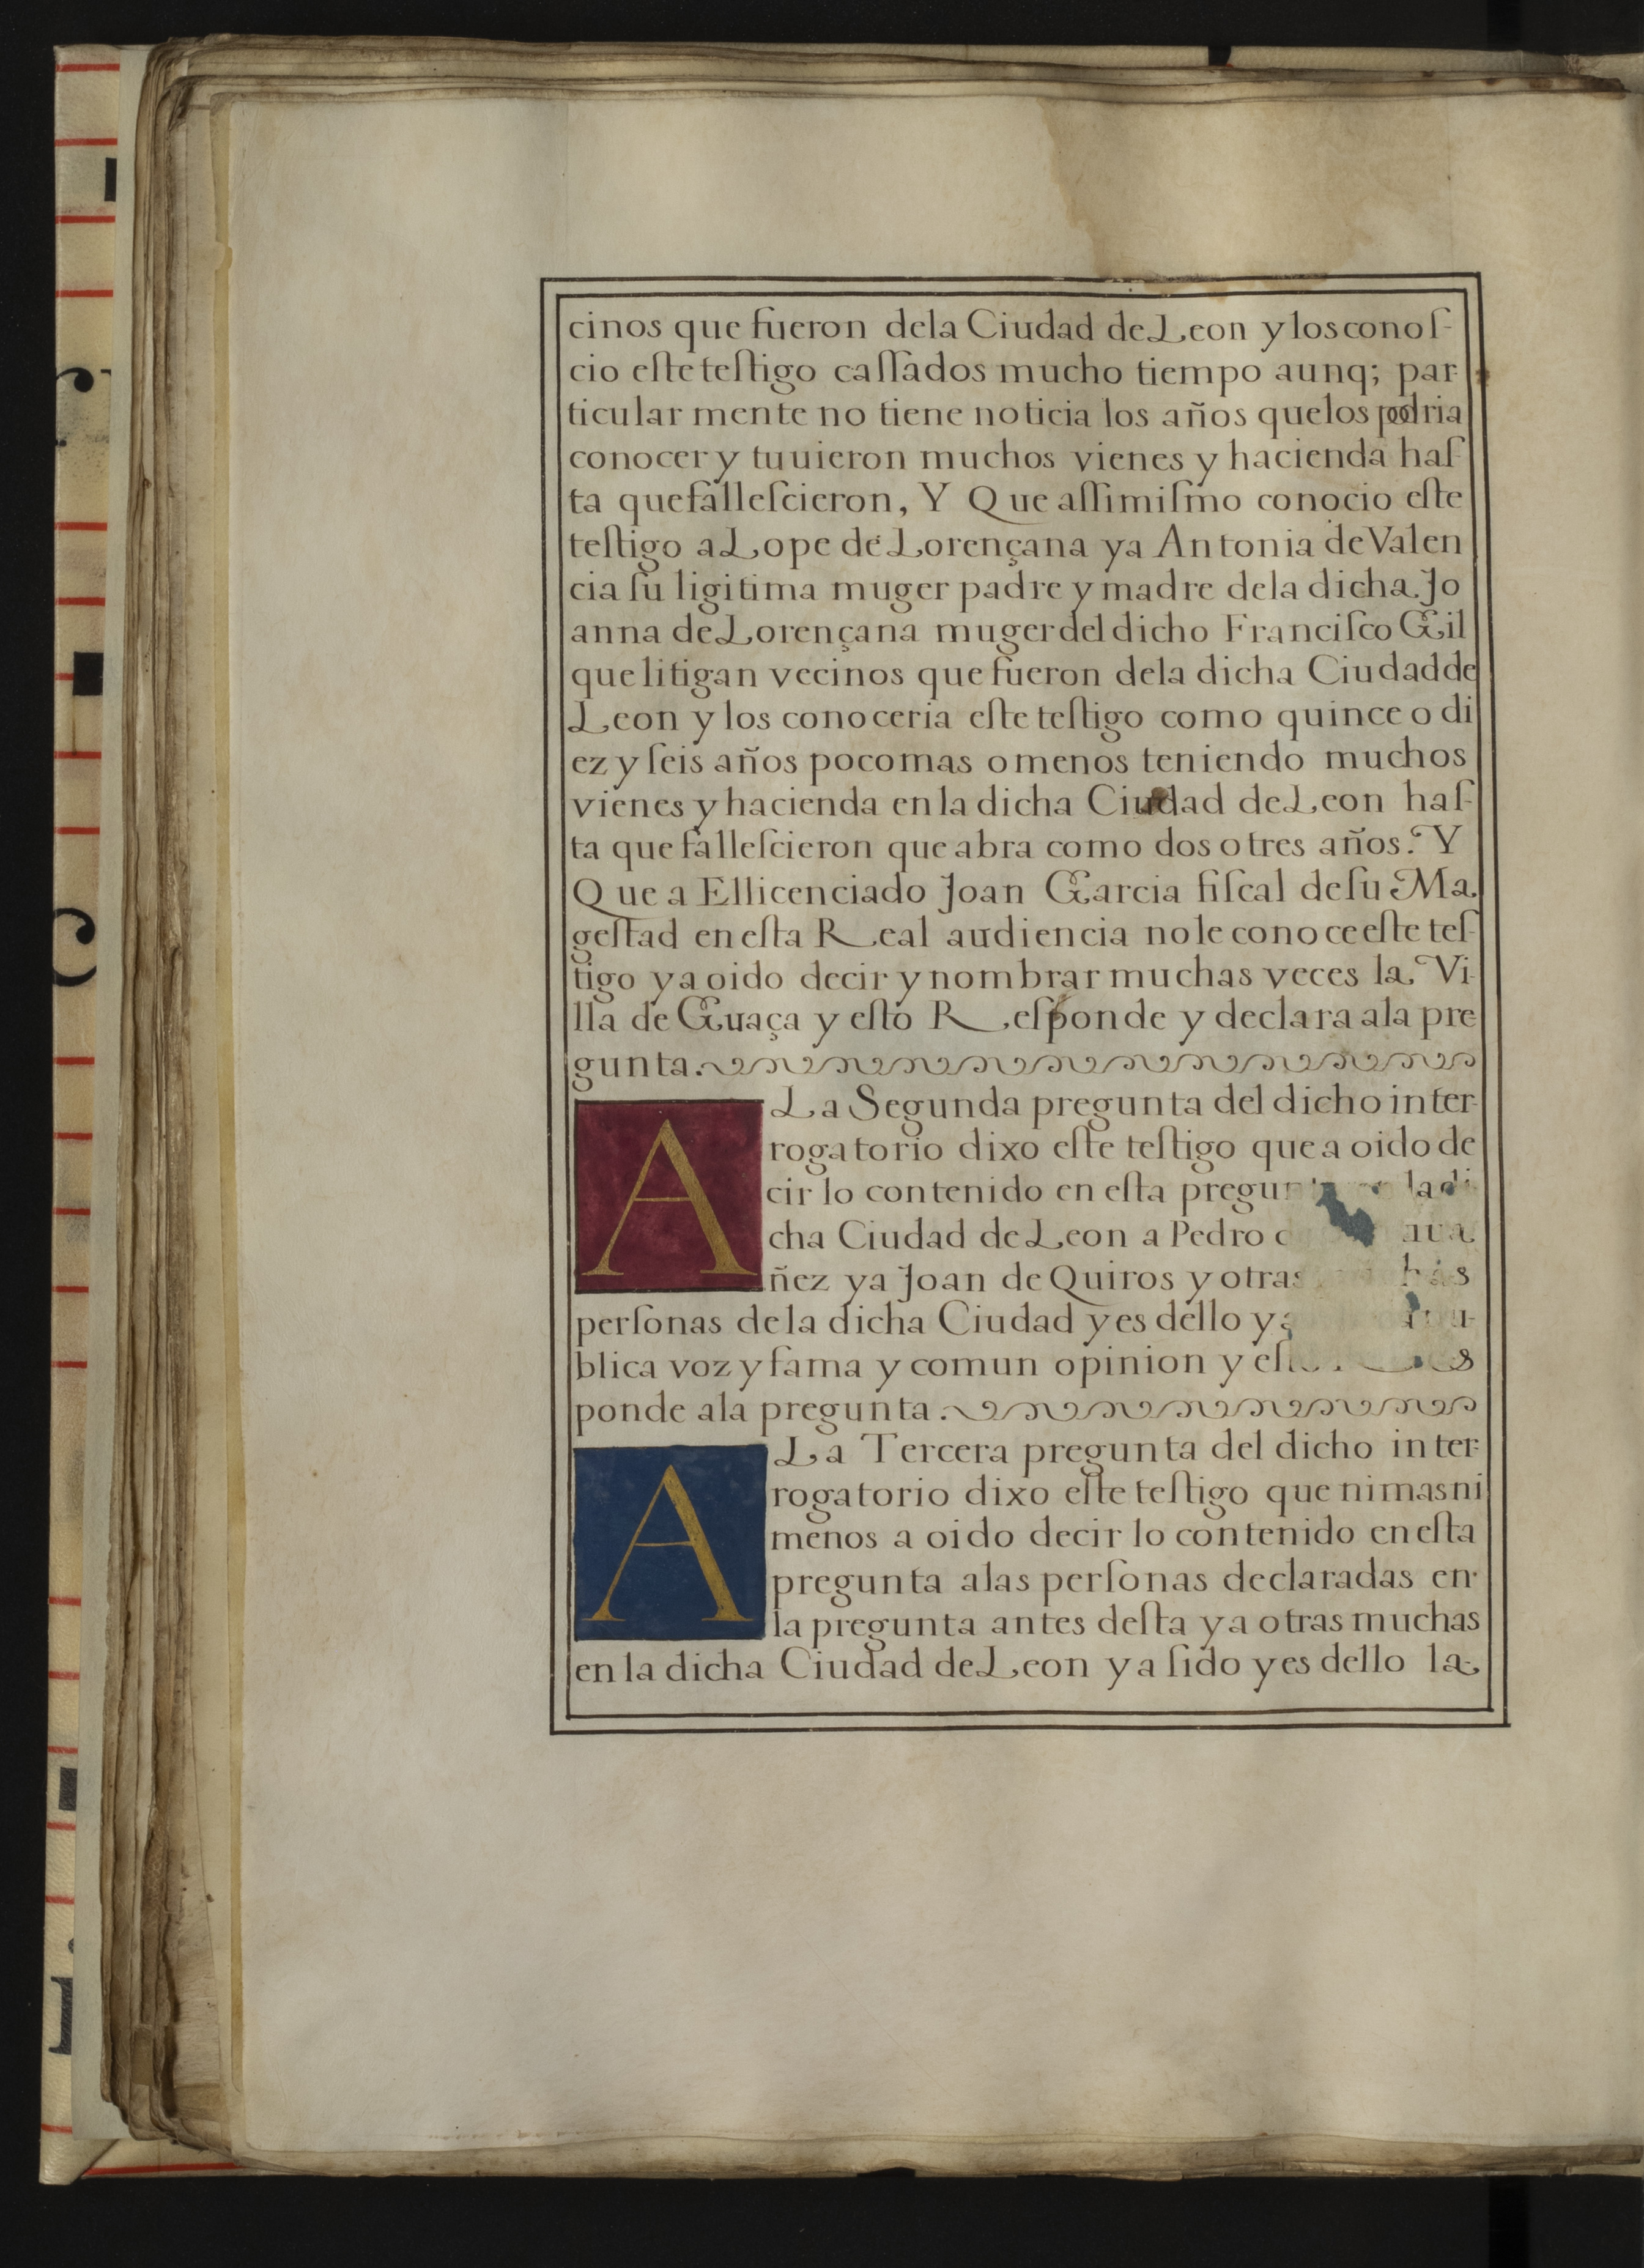 cinos que fueron dela Ciudad de Leon y los conoſ-
cio eſte teſtigo caſſados mucho tiempo aunq; par-
ticular mente no tiene noticia los años que los podria
conocer y tuuieron muchos vienes y hacienda haſ
ta que falleſcieron, Y Que aſſimiſmo conocio eſte
teſtigo a Lope de Lorençana ya Antonia de Valen
cia ſu ligitima muger padre y madre dela dicha. Jo
anna de Lorençana muger del dicho Franciſco Gil
que litigan vecinos que fueron dela dicha Ciudad de
Leon y los conoceria eſte teſtigo como quince o di
ez y ſeis años poco mas o menos teniendo muchos
vienes y hacienda en la dicha Ciudad de Leon haſ-
ta que falleſcieron que abra como dos o tres años. Y
Que a El licenciado Joan Garcia fiſcal de ſu Ma.
geſtad en eſta Real audiencia no le conoce eſte teſ-
tigo y a oido decir y nombrar muchas veces la Vi-
lla de Guaça y eſto Reſponde y declara ala pre
gunta.
A La Segunda pregunta del dicho inter-
rogatorio dixo eſte teſtigo que a oido de
cir lo contenido en eſta la di
cha Ciudad de Leon a Pedro
ñez ya Joan de Quiros y otras
perſonas de la dicha Ciudad y es dello y
blica voz y fama y comun opinion y
ponde ala pregunta.
A La Tercera pregunta del dicho inter-
rogatorio dixo eſte teſtigo que ni mas ni
menos a oido decir lo contenido en eſta
pregunta alas perſonas declaradas en
la pregunta antes deſta y a otras muchas
en la dicha Ciudad de Leon y a ſido y es dello la